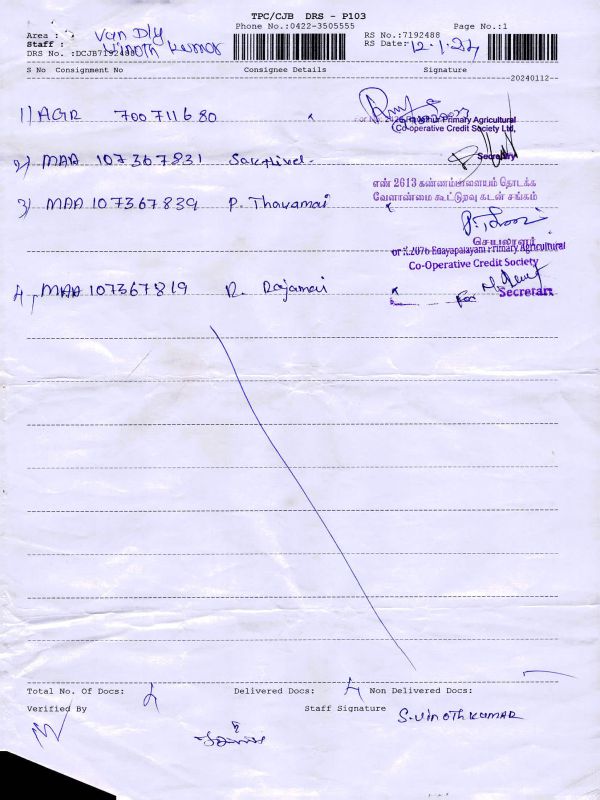 TPC/CJB DRS - P103
Phone No.:0422-3505555 Page No.:1
Area : Van Dly
RS No.:7192488
Staff : Vinoth Kumar
RS Date: 12.1.24
DRS No. :DCJB7192488
S No Consignment No Consignee Details Signature
20240112
1) AGR 700711680
Primary Agricultural
Co-operative Credit Society Ltd,
Secretary
2) MAA 107367831 Sakthivel.
எண் 2613 கண்ணம்பாளையம் தொடக்க
வேளாண்மை கூட்டுறவு கடன் சங்கம்
3) MAA 107367839 P. Thavamai
செயலாளர்
Edayapalayam Primary Agricultural
Co-Operative Credit Society
4) MAA 107367819 R. Rajamai
For
Secretary
Total No. Of Docs: 4 Delivered Docs: 4 Non Delivered Docs:
Verified By Staff Signature S.VINOTHKUMAR